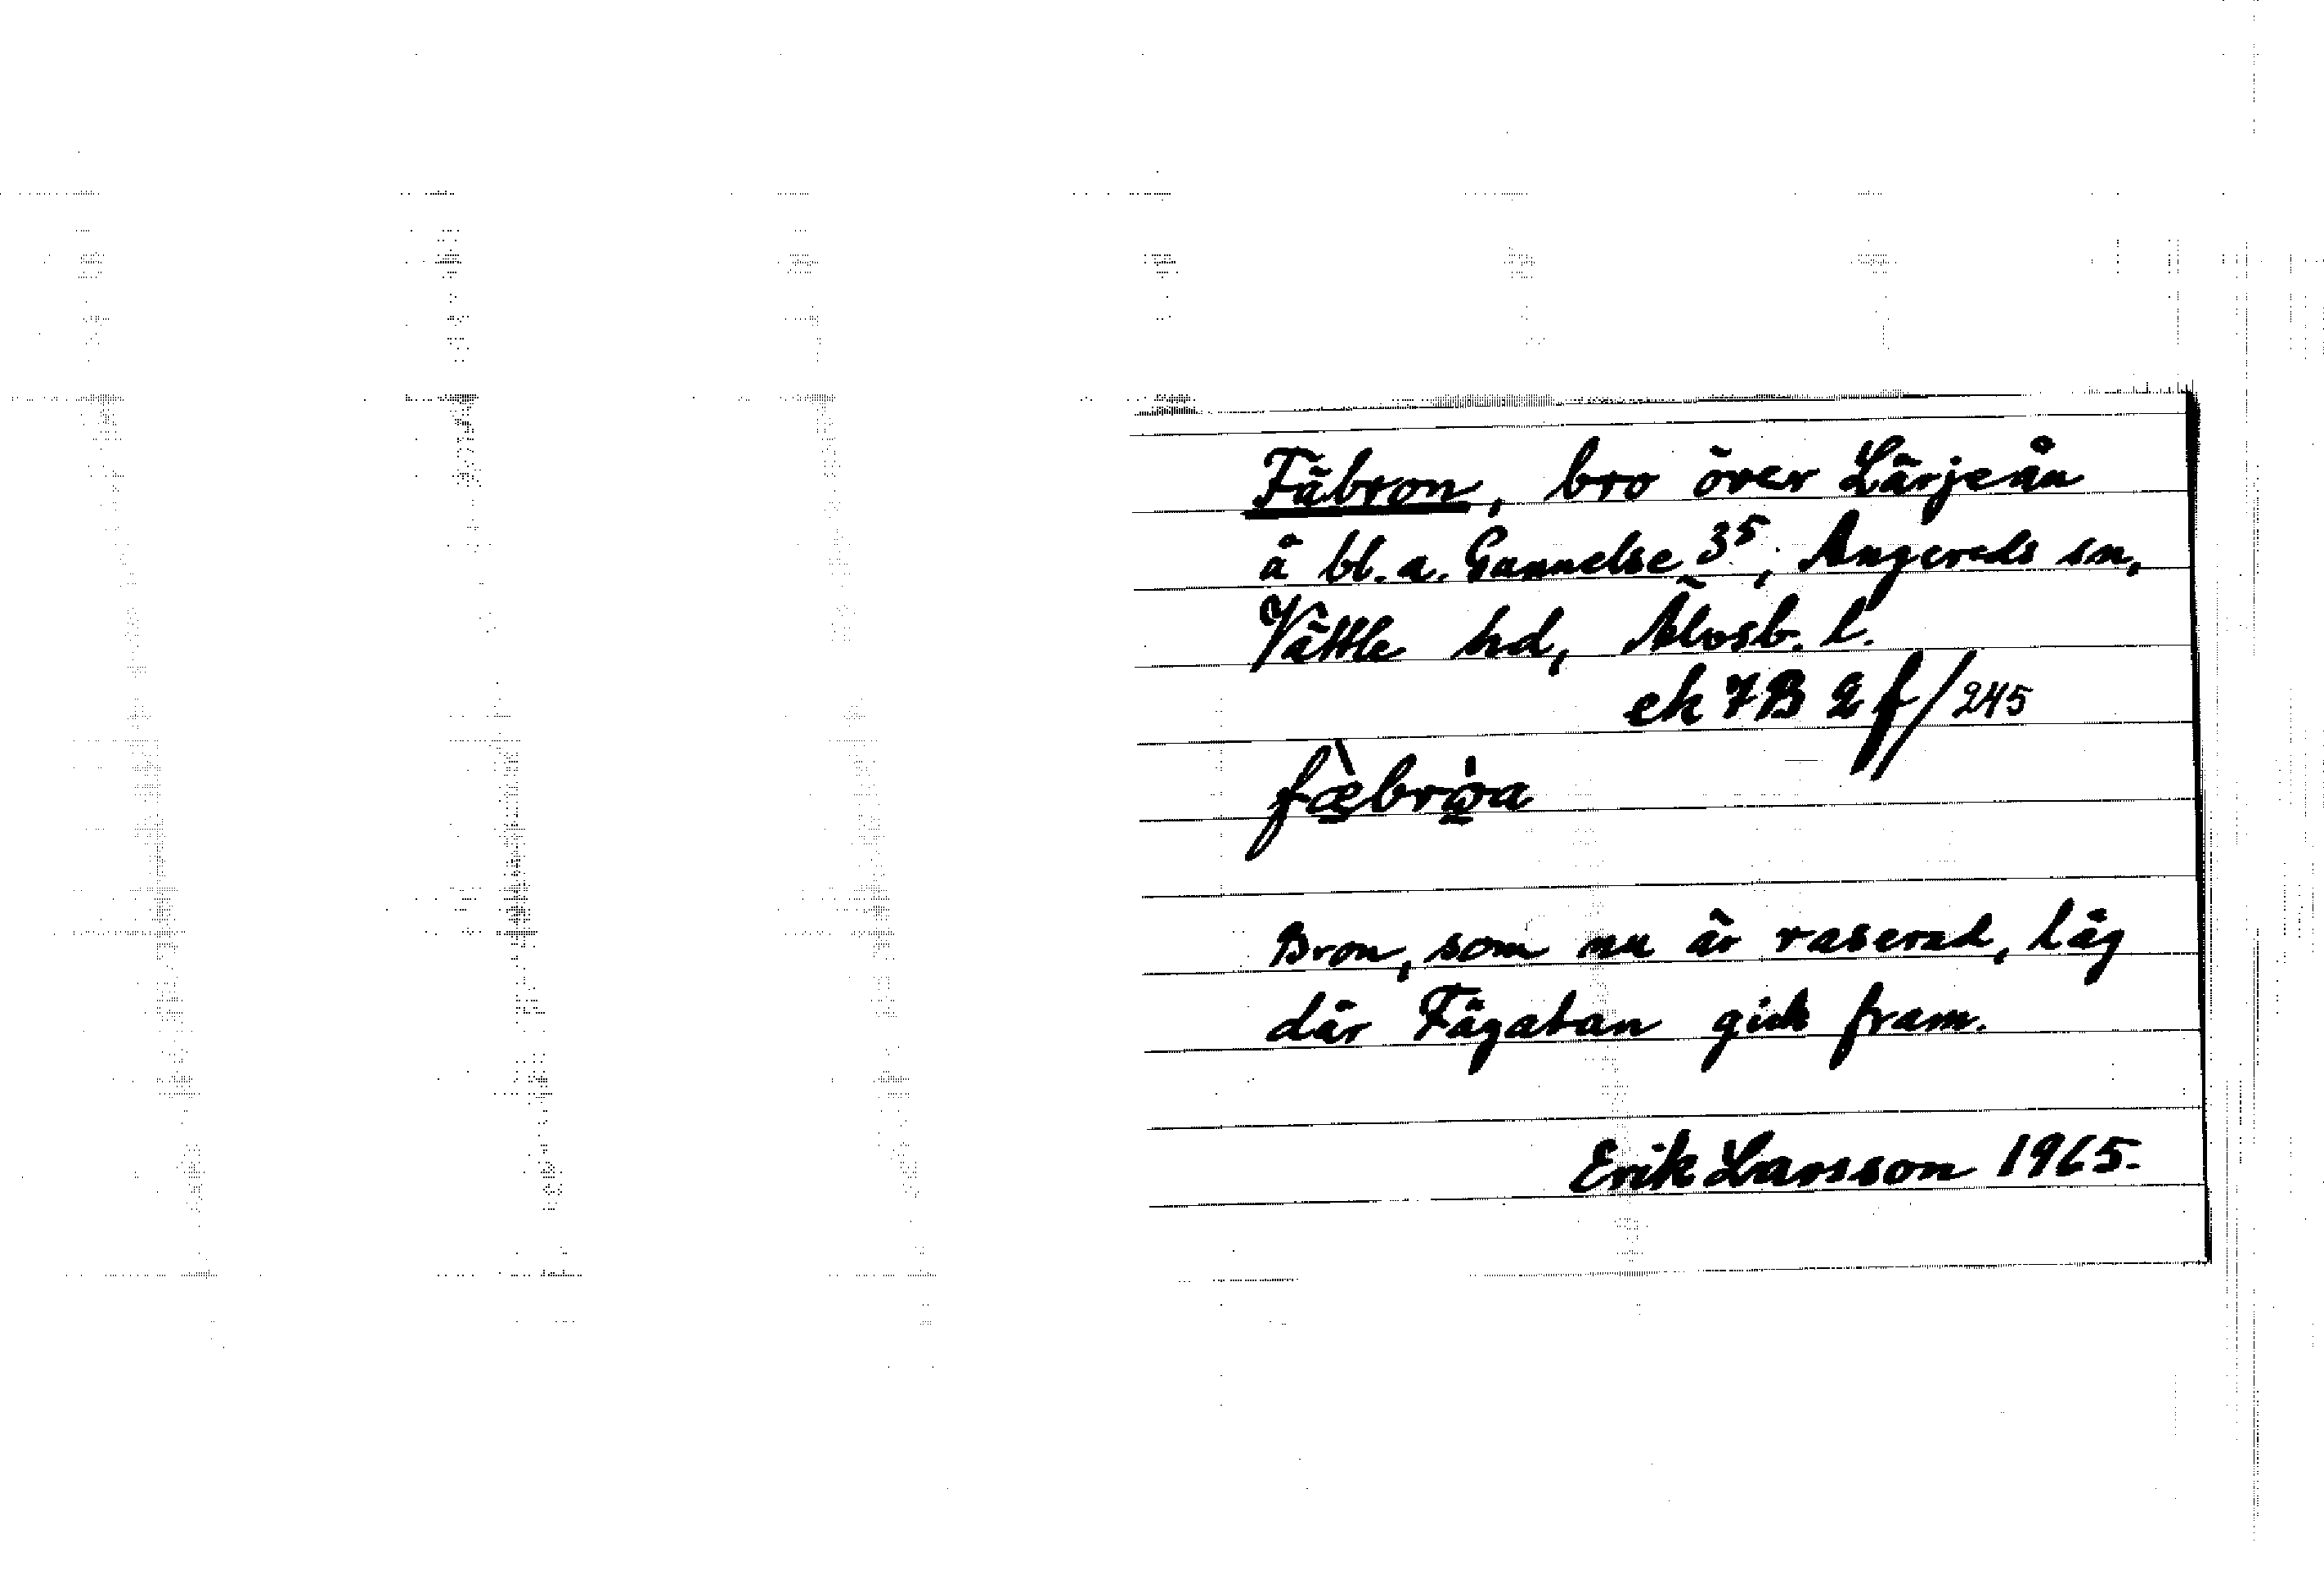 Fäbron, bro över Lärjeån
å bl. a. Gunnelse 3⁵, Angereds sn,
Vättle hd, Älvsb. l.
ek 7B 2f/245
fæ̀brὼ̠a
Bron, som nu är raserad, låg
där Fägatan gick fram.
Erik Larsson 1965.